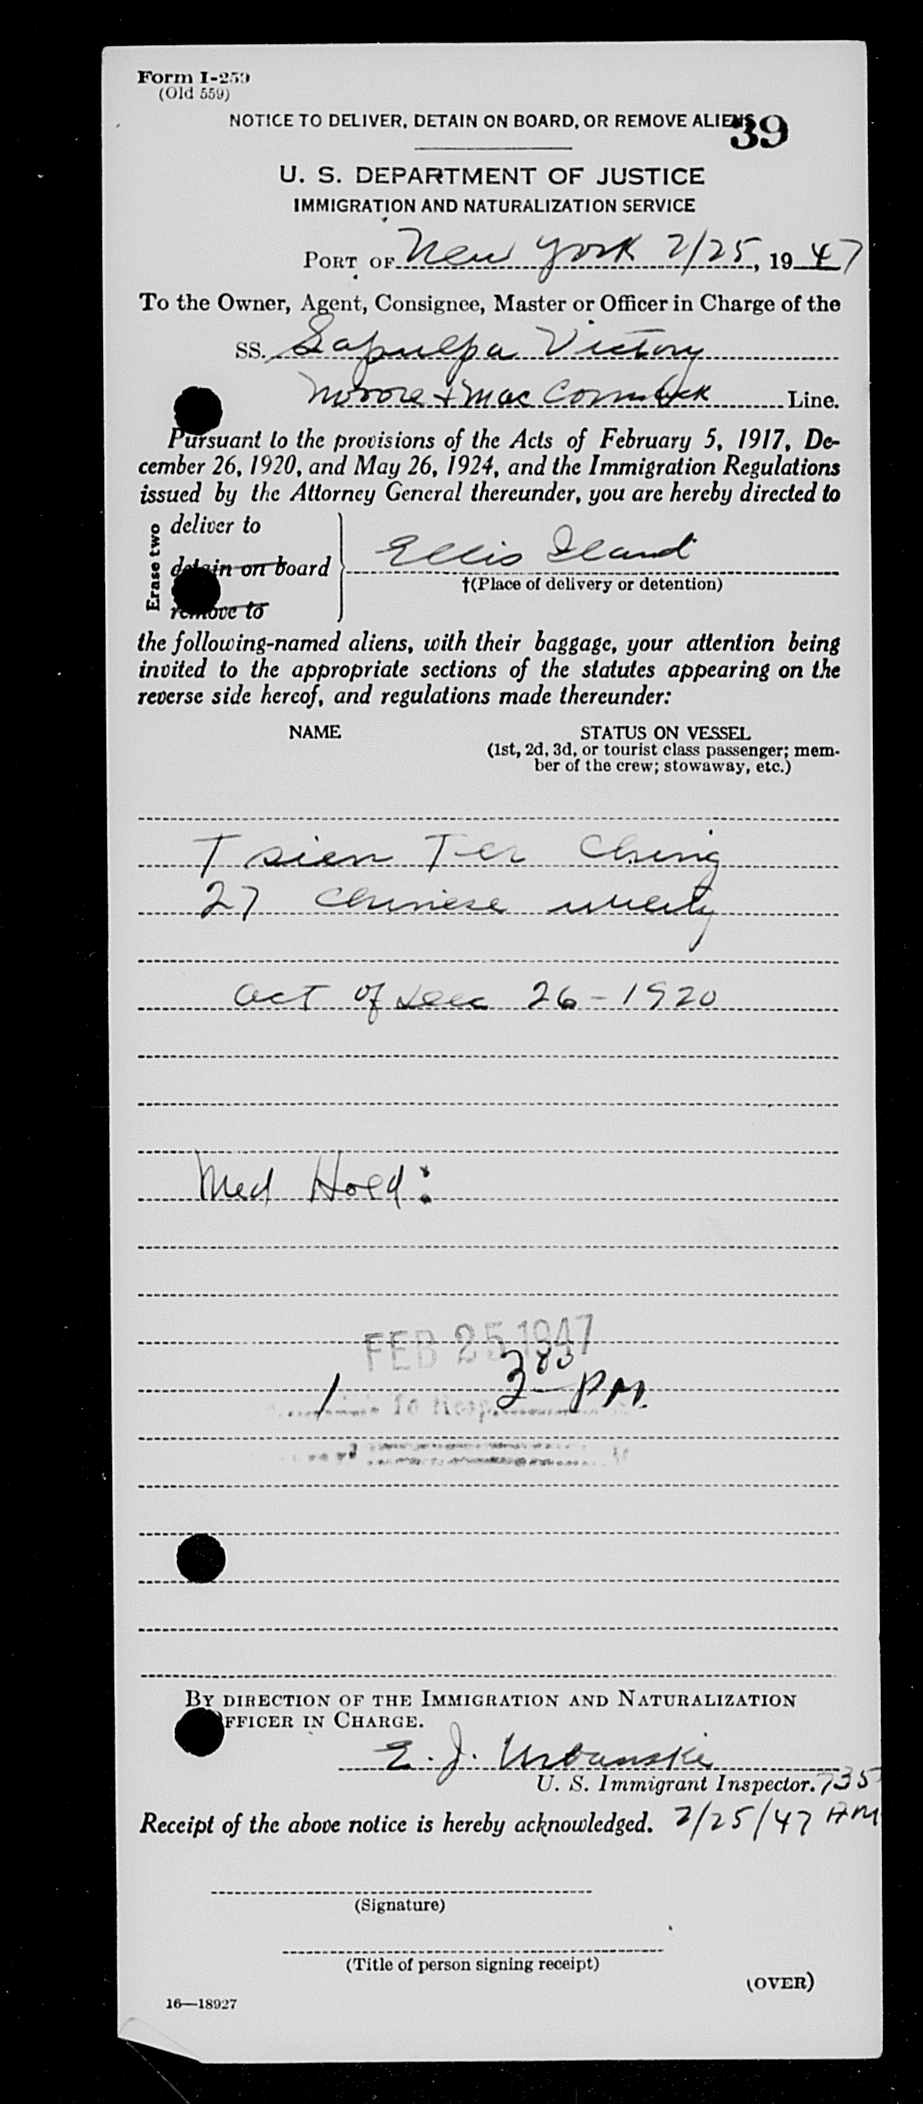 Form I-259
(Old 559)
NOTICE TO DELIVER, DETAIN ON BOARD, OR REMOVE ALIENS
39
U. S. DEPARTMENT OF JUSTICE
IMMIGRATION AND NATURALIZATION SERVICE
PORT OF New York 2/25, 1947
To the Owner, Agent, Consignee, Master or Officer in Charge of the
SS. Sapulpa Victory
Moore & Mac Cormack Line.
Pursuant to the provisions of the Acts of February 5, 1917, De-
cember 26, 1920, and May 26, 1924, and the Immigration Regulations
issued by the Attorney General thereunder, you are hereby directed to
Erase two
deliver to
detain on board
remove to
Ellis Iland
†(Place of delivery or detention)
the following-named aliens, with their baggage, your attention being
invited to the appropriate sections of the statutes appearing on the
reverse side hereof, and regulations made thereunder:
NAME
STATUS ON VESSEL
(1st, 2d, 3d, or tourist class passenger; mem-
ber of the crew; stowaway, etc.)
Tsien Ter Ching
27 Chinese
Act of Dec 26-1920
Med Hold:
FEB 25 1947
1 3 PM.
To Hosp.
BY DIRECTION OF THE IMMIGRATION AND NATURALIZATION
OFFICER IN CHARGE.
E. J. Urbanski
U. S. Immigrant Inspector. 735
Receipt of the above notice is hereby acknowledged. 2/25/47 AM
(Signature)
(Title of person signing receipt)
(OVER)
16—18927